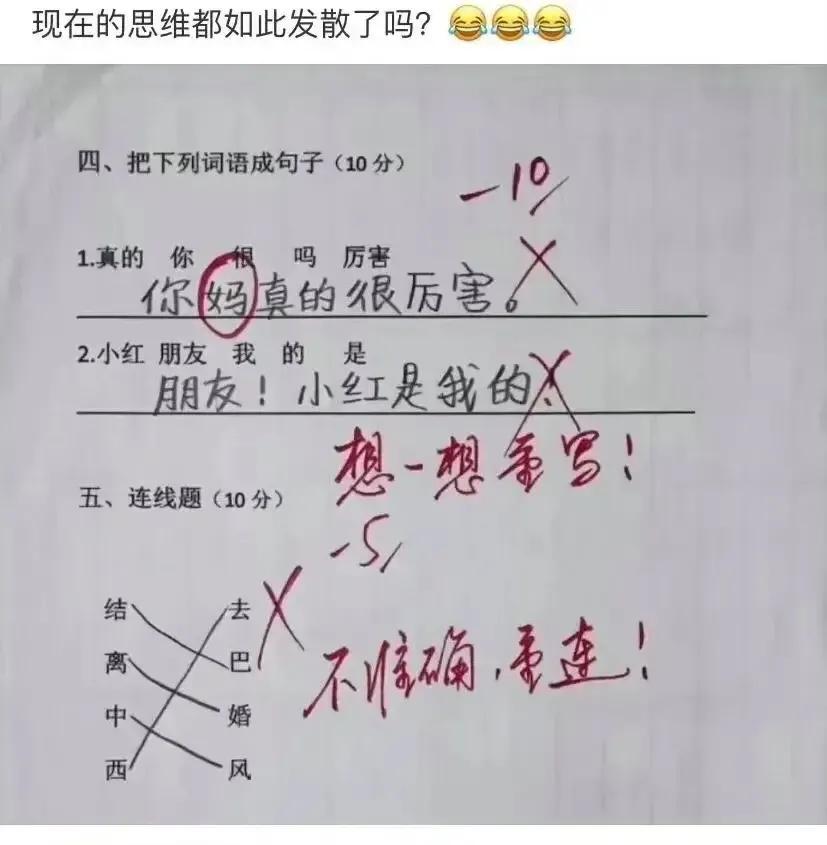 现在的思维都如此发散了吗？😂😂😂
四、把下列词语成句子（10 分）
-10
1.真的 你 很 吗 厉害
你妈真的很厉害。
2.小红 朋友 我 的 是
朋友！小红是我的.
想一想重写！
五、连线题（10 分）
-5
结 去
离 巴
不准确，重连！
中 婚
西 风